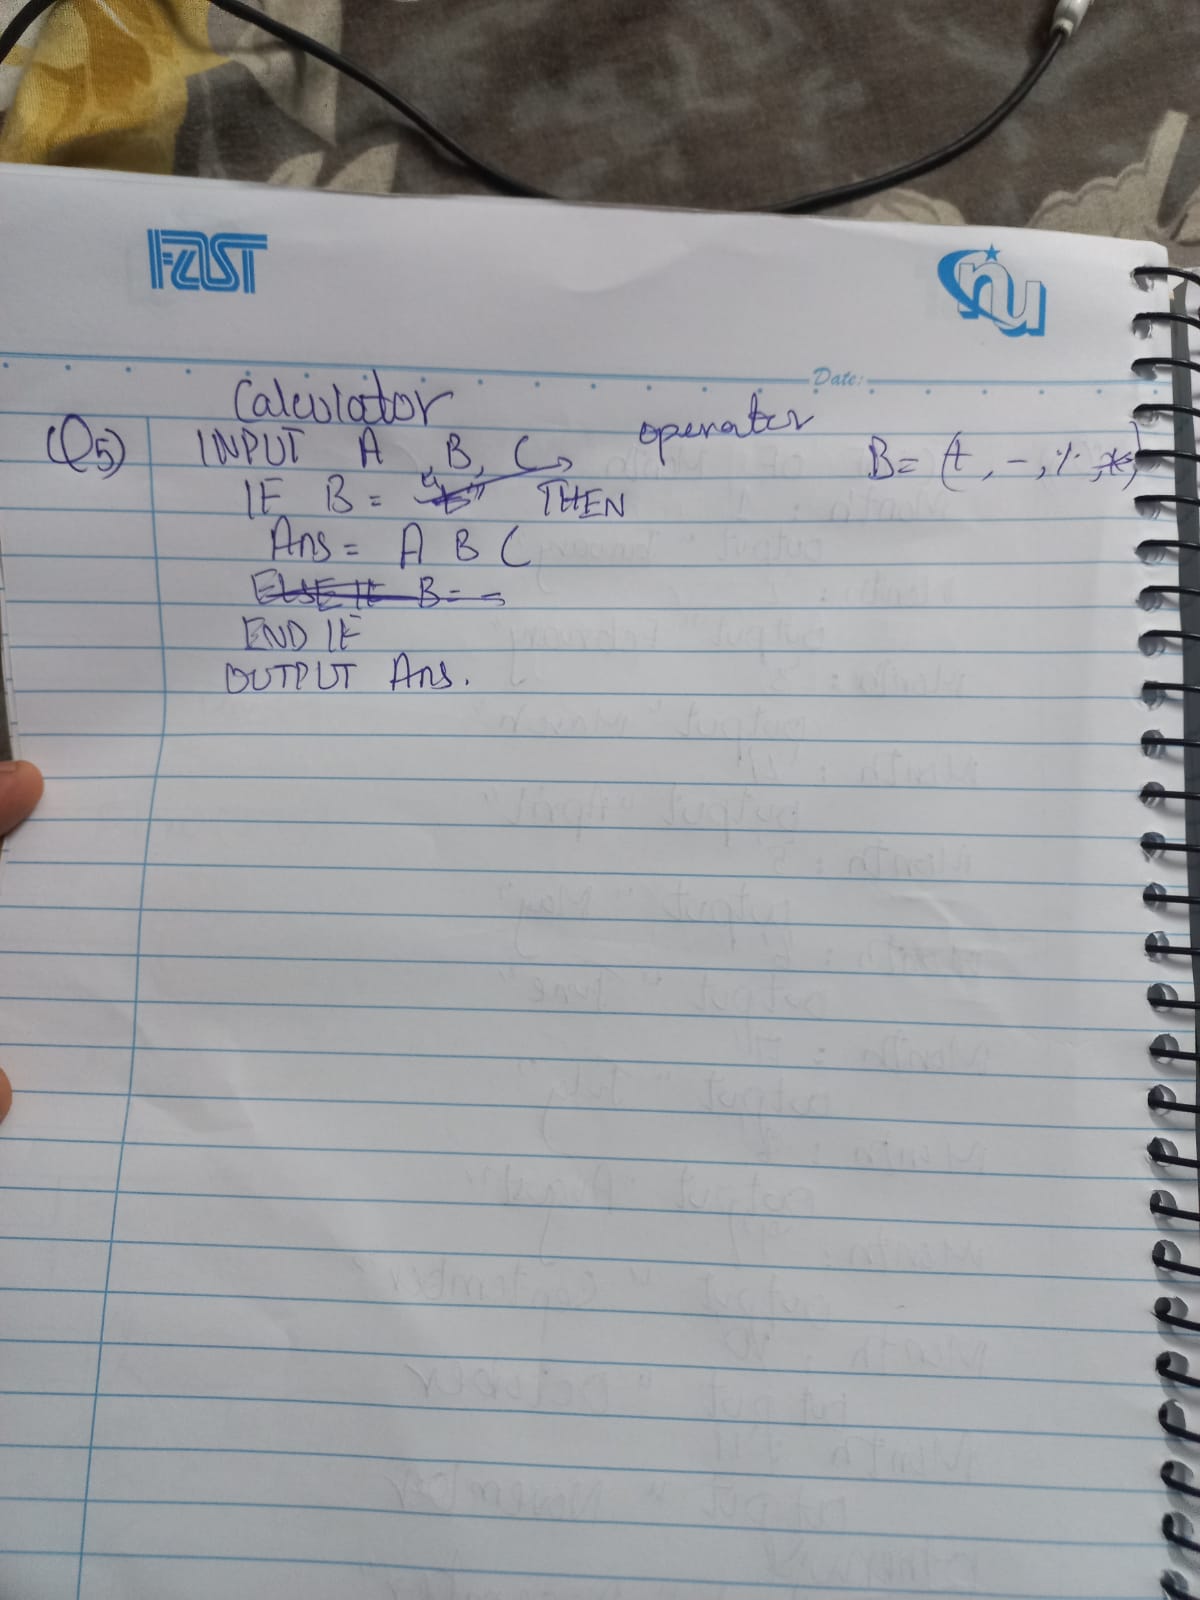 FAST
nu
Date:
Calculator
(Q5) INPUT A B, C operator B = (+, -, %, *)
IF B = THEN
Ans = A B C
ELSE IF B = -
END IF
OUTPUT Ans.